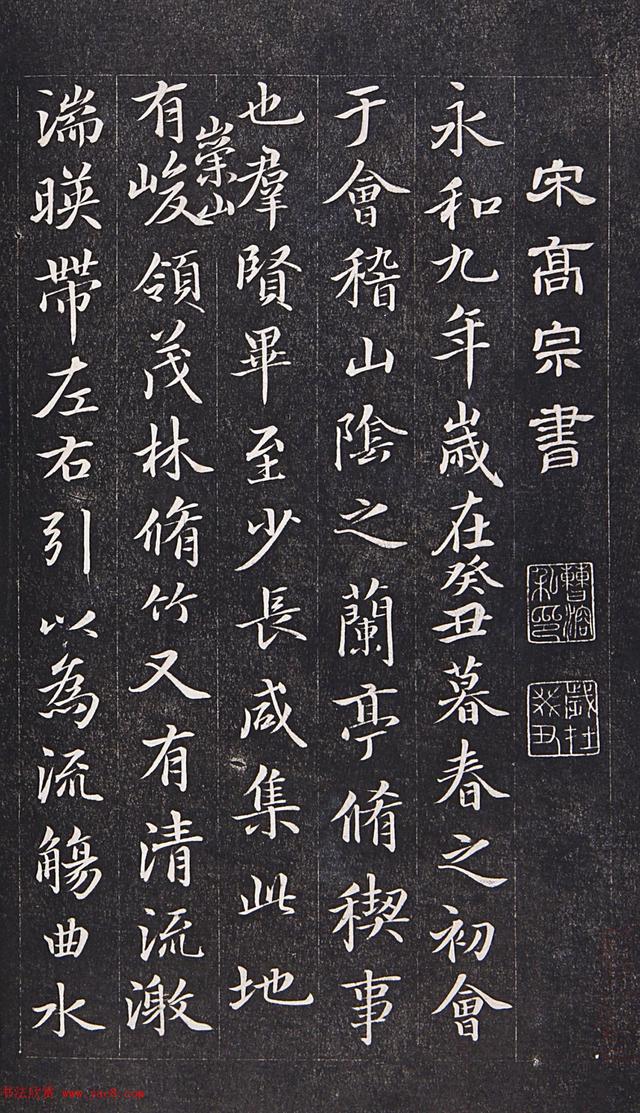 宋高宗書
永和九年歲在癸丑暮春之初會
于會稽山陰之蘭亭脩稧事
也羣賢畢至少長咸集此地
有崇山峻領茂林脩竹又有清流激
湍暎帶左右引以為流觴曲水
曹溶私印
歲在癸丑
书法欣赏 www.yac8.com